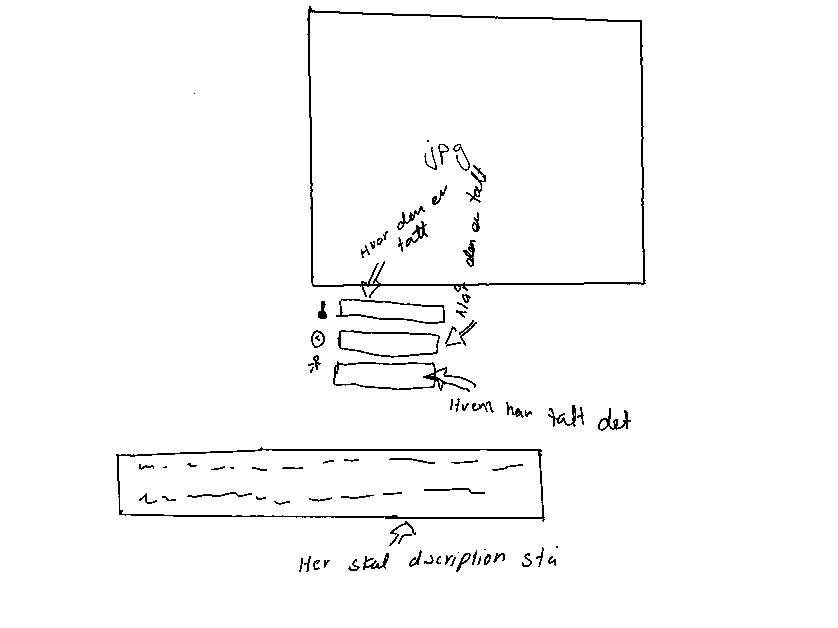 jpg
Hvor den er
tatt
Når den er tatt
Hvem har tatt det
Her skal dscription stå